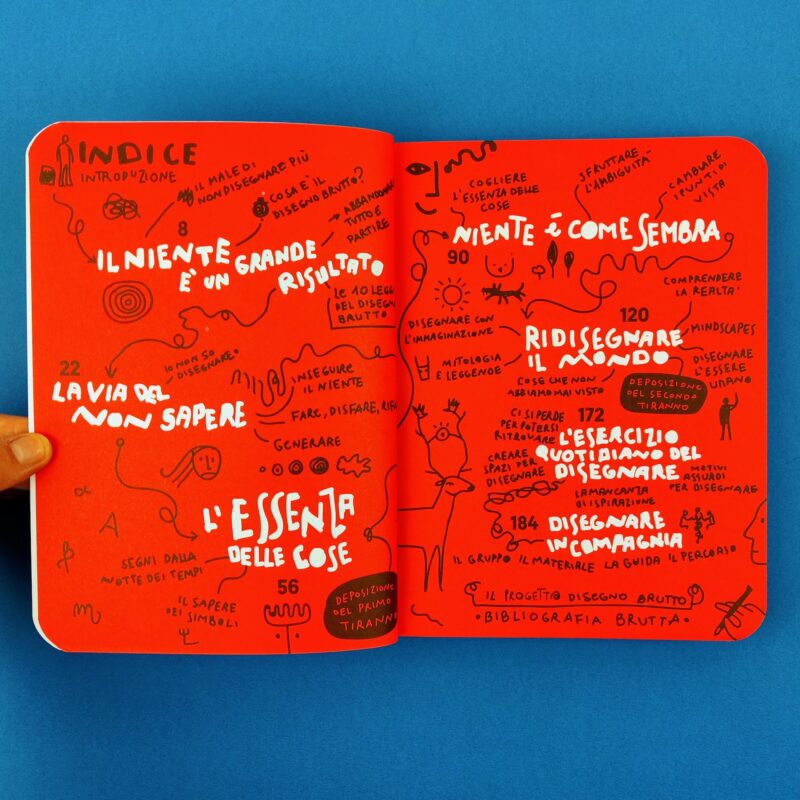 INDICE
INTRODUZIONE
IL MALE DI
NON DISEGNARE PIÙ
COSA È IL
DISEGNO BRUTTO?
ABBANDONARE
TUTTO E
PARTIRE
8
IL NIENTE
E' UN GRANDE
RISULTATO
LE 10 LEGGI
DEL DISEGNO
BRUTTO
22
IO NON SO
DISEGNARE
LA VIA DEL
NON SAPERE
INSEGUIRE
IL NIENTE
FARE, DISFARE, RIFA
GENERARE
L'ESSENZA
DELLE COSE
α
A
β
m
SEGNI DALLA
NOTTE DEI TEMPI
IL SAPERE
DEI SIMBOLI
56
DEPOSIZIONE
DEL PRIMO
TIRANNO
COGLIERE
L'ESSENZA DELLE
COSE
SFRUTTARE
L'AMBIGUITÀ
CAMBIARE
I PUNTI DI
VISTA
NIENTE È COME SEMBRA
90
COMPRENDERE
LA REALTA'
DISEGNARE CON
L'IMMAGINAZIONE
120
RIDISEGNARE
IL MONDO
MINDSCAPES
MITOLOGIA
E LEGGENDE
COSE CHE NON
ABBIAMO MAI VISTO
DISEGNARE
L'ESSERE
UMANO
DEPOSIZIONE
DEL SECONDO
TIRANNO
CI SI PERDE
PER POTERSI
RITROVARE
172
L'ESERCIZIO
QUOTIDIANO DEL
DISEGNARE
CREARE
SPAZI PER
DISEGNARE
MOTIVI
ASSURDI
PER DISEGNARE
LA MANCANZA
DI ISPIRAZIONE
184
DISEGNARE
IN COMPAGNIA
IL GRUPPO IL MATERIALE LA GUIDA IL PERCORSO
IL PROGETTO DISEGNO BRUTTO
•BIBLIOGRAFIA BRUTTA•